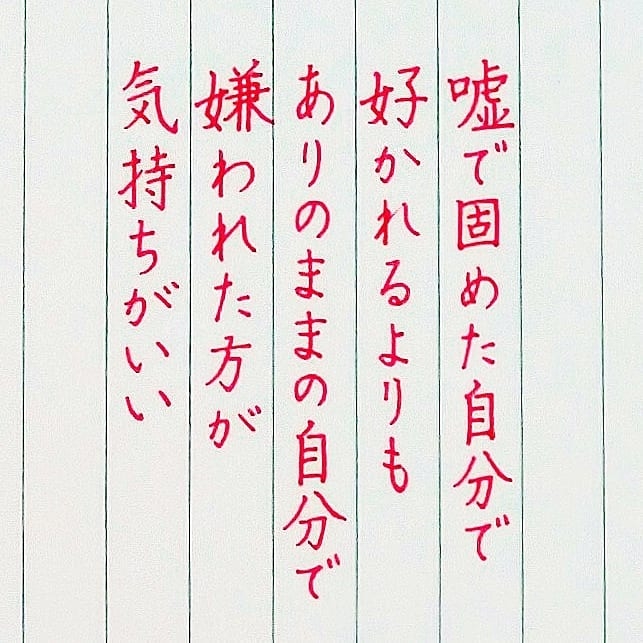 嘘で固めた自分で
好かれるよりも
ありのままの自分で
嫌われた方が
気持ちがいい